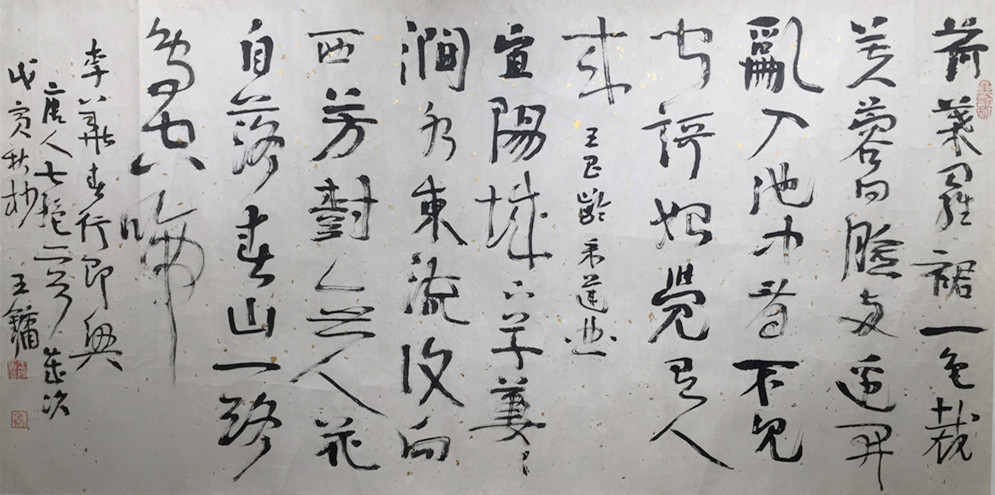 荷葉羅裙一色裁
芙蓉向臉兩邊開
亂入池中看不見
聞謌始覺有人
来 王昌齡采蓮曲
宜陽城下草萋〻
澗水東流復向
西芳樹無人花
自落春山一路
鳥空啼
李華春行即興
唐人七絕二首
戊寅秋杪 王鏞